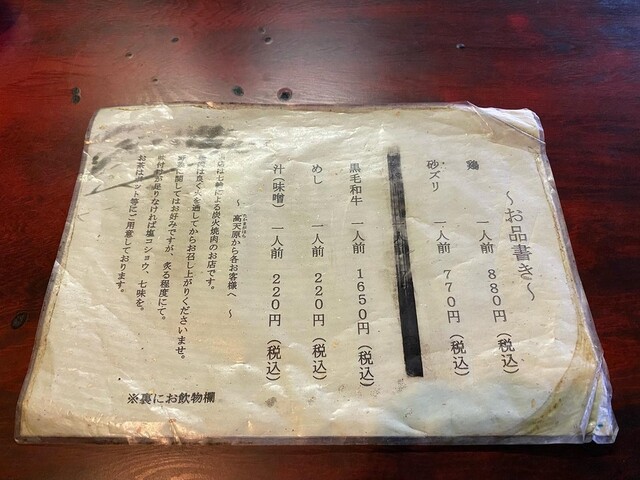 ～お品書き～
鶏　一人前　８８０円（税込）
砂ズリ　一人前　７７０円（税込）
黒毛和牛　一人前　１６５０円（税込）
めし　一人前　２２０円（税込）
汁（味噌）　一人前　２２０円（税込）
～　高天原から各お客様へ　～
店は七輪による炭火焼肉のお店です。
は良く火を通してからお召し上がりくださいませ。
に関してはお好みですが、炙る程度にて。
味付が足りなければ塩コショウ、七味を。
お茶はポット等にご用意しております。
※裏にお飲物欄